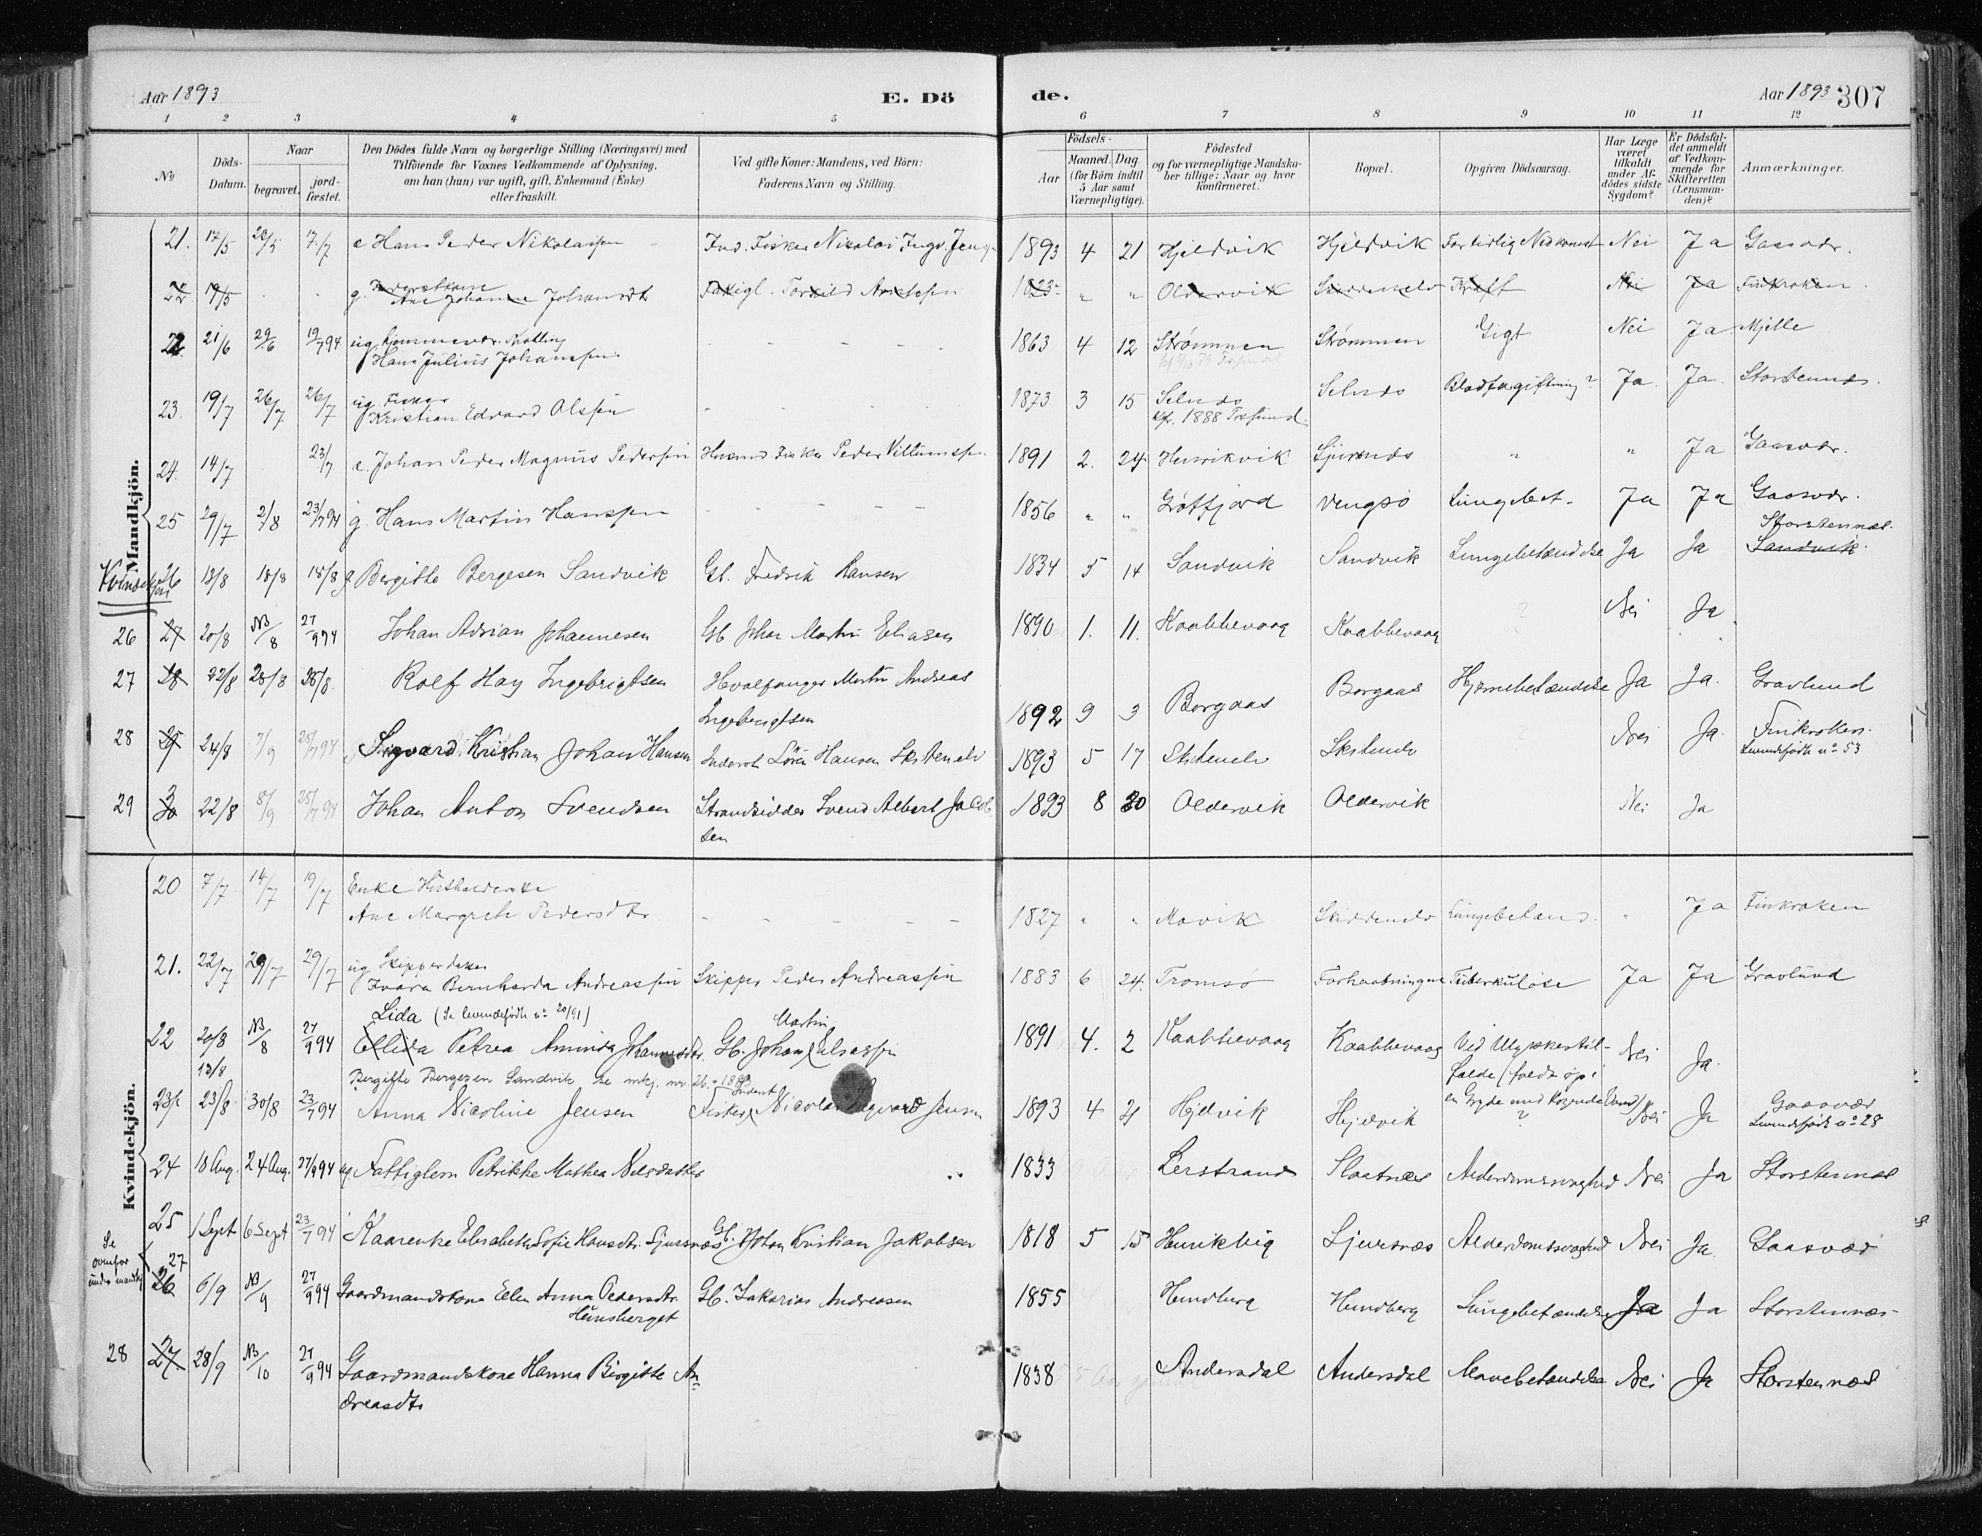 Aar 1893 E. Dö
de. Aar 1893 307
1 2 3 4 5
6 7 8 9 10 11 12
No
Döds-Datum.
Naar
begravet. jord-fæstet.
Den Dödes fulde Navn og borgerlige Stilling (Næringsvei) med
Tilföiende for Voxnes Vedkommende af Oplysning,
om han (hun) var ugift, gift, Enkemand (Enke)
eller fraskilt.
Ved gifte Koner: Mandens, ved Börn:
Faderens Navn og Stilling.
Födsels-
Aar
Maaned. Dag.
(for Börn indtil
5 Aar samt
Værnepligtige).
Födested
og for værnepligtige Mandska-
ber tillige: Naar og hvor
konfirmeret.
Bopæl.
Opgiven Dödsaarsag.
Har Læge
været
tilkaldt
under Af-
dödes sidste
Sygdom?
Er Dödsfal-
det anmeldt
af Vedkom-
mende for
Skifteretten
(Lensman-
den)?
Anmærkninger.
Mandkjön.
21. 17/5 20/5 7/7 Hans Peder Nikolaisen Fisker Nikolai Jens 1893 4 21 Hjeldvik Hjeldvik For tidlig Nedkomst Nei Ja Gaasvær.
22 19/5 g. Ane Johanne Johansdt 1823 " " Oldervik Kræft Nei Ja Finkroken.
22 21/6 29/6 19/7 94 ug.
Hans Julius Johansen - - - - 1863 4 12 Strømmen Strømmen Gigt Nei Ja Mjelle
23. 19/7 26/7 26/7 ug. Fisker
Kristian Edvard Olsen - - - - 1873 3 15 Selnes Selnes Blodforgiftning? Ja. Ja. Storstennes.
Kf. 1888
24. 14/7 23/7 Johan Peder Magnus Pedersen Fisker Peder Villumsen 1891 2. 24 Henrikvik Sjursnes " " Ja Gaasvær.
25 29/7 2/8 23/7 94 g. Hans Martin Hansen - - - - 1856 " " Grøtfjord Vengsø Lungebet. Ja Ja Gaasvær.
Storstennæs.
Kvindekjøn 26 13/8 18/8 18/8 g Bergitte Bergesen Sandvik Gb. Fredrik Hansen 1834 5 14 Sandvik Sandvik Lungebetændelse Ja Ja Sandvik.
26 27 20/8 NB/8 27/9 94 Johan Adrian Johannesen Gb Johan Martin Eliasen 1890 1. 11. Kaabbevaag Kaabbevaag ? Nei Ja
27 28 22/8 28/8 28/8. Rolf Hay Ingebrigtsen Hvalfanger Martin Andreas
Ingebrigtsen 1892 9 3 Borgaas Borgaas Hjernebetændelse Ja Ja. Gravlund
28 29 24/8 7/9 25/7 94 Sigvard Kristian Johan Hansen Søren Hansen 1893 5 17 Nei Ja Finkroken.
Levendefødte no 53
29 30 22/8 8/9 25/7 94 Johan Anton Svendsen Strandsidder Svend Albert Jacob-
sen 1893 8 20 Oldervik Oldervik Nei Ja
Kvindekjön.
20 7/7 14/7 19/7 Enke
Ane Margrete Pedersdtr. - - - - 1827 " " Mavik Lungebetænd. " Ja Finkroken
21. 22/7 29/7 29/7 ug Skipperdatter
Ivara Bernharda Andreassen Skipper Peder Andreassen 1883 6 24. Tromsø Forhaabningen Tuberkulose Ja Ja Gravlund
Lida (Se levendefødte no 20/91)
22 20/8 NB/8 27/9 94 Ellida Petrea Aminda Johannesdtr. Gb. Johan Martin Eliassen 1891 4. 2 Kaabbevaag Kaabbevaag Ved Ulykkestil-
fælde (faldt op i
en Gryde med kogende Vand) Nei Ja.
13/8 Bergitte Bergesen Sandvik se mkj. no 26 - 1893
23 23/8 30/8 23/7 94 Anna Nicoline Jensen Fisker Nicolai Ingvard Jensen 1893 4 21 Hjelvik Hjelvik ? Nei Ja Gaasvær
Levendefødte no 28
24 18 Aug. 24 Aug. 27/9 94 ug Fattiglem Petrikke Mathea Nilsdatter " 1833 Lerstrand Slaatnæs Alderdomssvaghed Nei Ja Storstennæs
25 1 Sept 6 Sept 23/7 94 Kaarenke Elisabeth Sofie Hansdtr. Sjursnæs Gb. Johan Kristian Jakobsen 1818 5 15 Henrikvig Sjursnæs Alderdomssvaghed Nei Ja. Gaasvær
Se
ovenfor
under mandkj
27
26 6/9 NB/9 27/9 94 Gaardmandskone Ellen Anna Pedersdtr
Heinsberget Gb. Zakarias Andreasen 1855 Hundberg Hundberg Lungebetændelse Ja Ja Storstennæs
28 27. 28/9 NB/10 27/9 94 Gaardmandskone Hanna Birgitte An-
dreasdtr 1838 Andersdal Andersdal Mavebetændelse Nei Ja Storstennæs